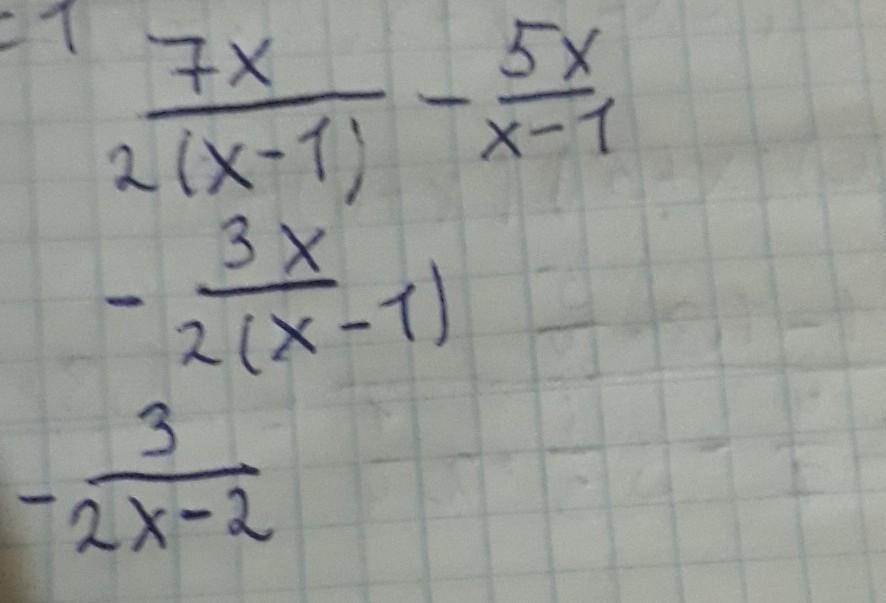 = 1
7x / 2(x-1) - 5x / x-1
- 3x / 2(x-1)
- 3 / 2x-2